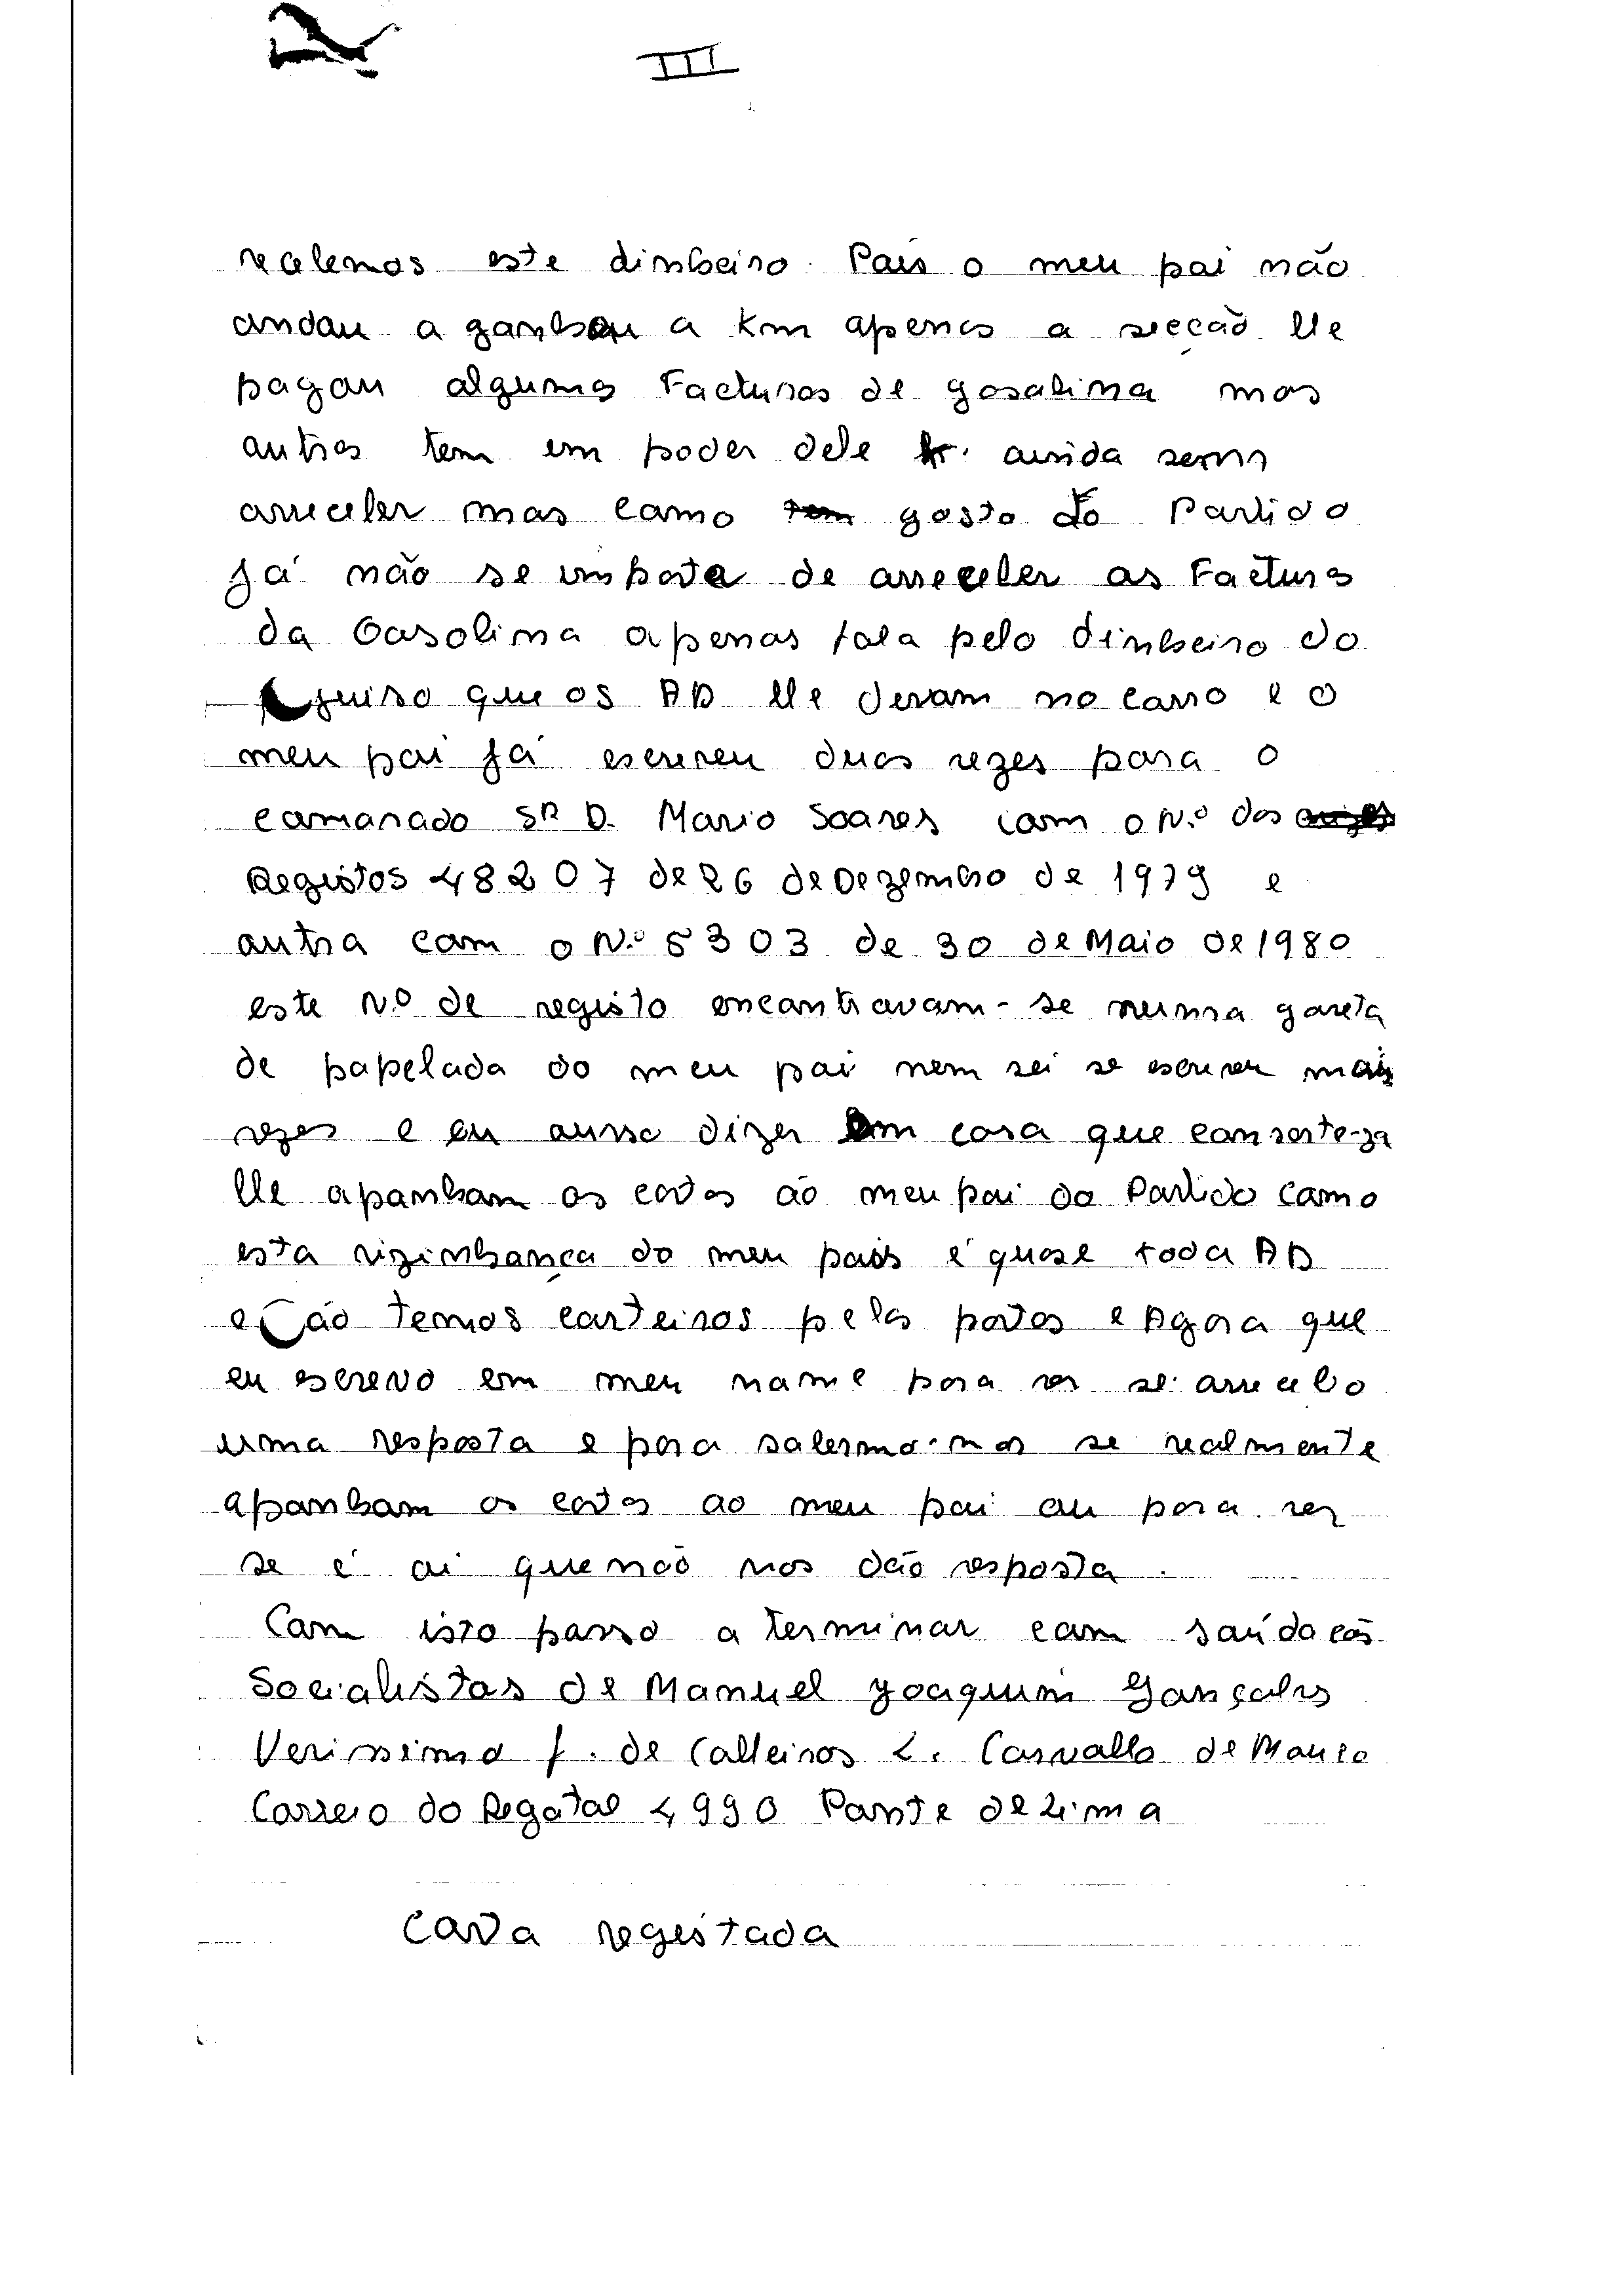 III
recebemos este dinheiro. Pois o meu pai não
andou a ganhou a Km apenas a secção lhe
pagou algumas Facturas de gasolina mas
outras tem em poder dele ainda sem
arreceber mas como gosto do Partido
já não se importa de arreceber as Facturas
da Gasolina apenas fala pelo dinheiro do
que os AD lhe deram no carro e o
meu pai já escreveu duas vezes para o
camarado SR D. Mario Soares com o N.º dos
Registos 48207 de 26 de Dezembro de 1979 e
outra com o N.º 5303 de 30 de Maio de 1980
este N.º de registo encontravam-se numa gaveta
de papelada do meu pai nem sei se escreveu mais
vezes e eu ouvso dizer em casa que comserteza
lhe apanham as cartas áo meu pai do Partido como
esta vizinhança do meu pais é quase toda AD
e não temos carteiros pelas portas e Agora que
eu escrevo em meu nome para ver se arrecebo
uma resposta e para sabermo-nos se realmente
apanham as cartas ao meu pai ou para ver
se é ai que não nos dão resposta.
Com isto passo a terminar com saúdacõs
Socialistas de Manuel Joaquim Gonçalves
Verissimo f. de Calheiros L. Carvalho de Mouro
Correio do Regatal 4990 Ponte de Lima
Carta registada